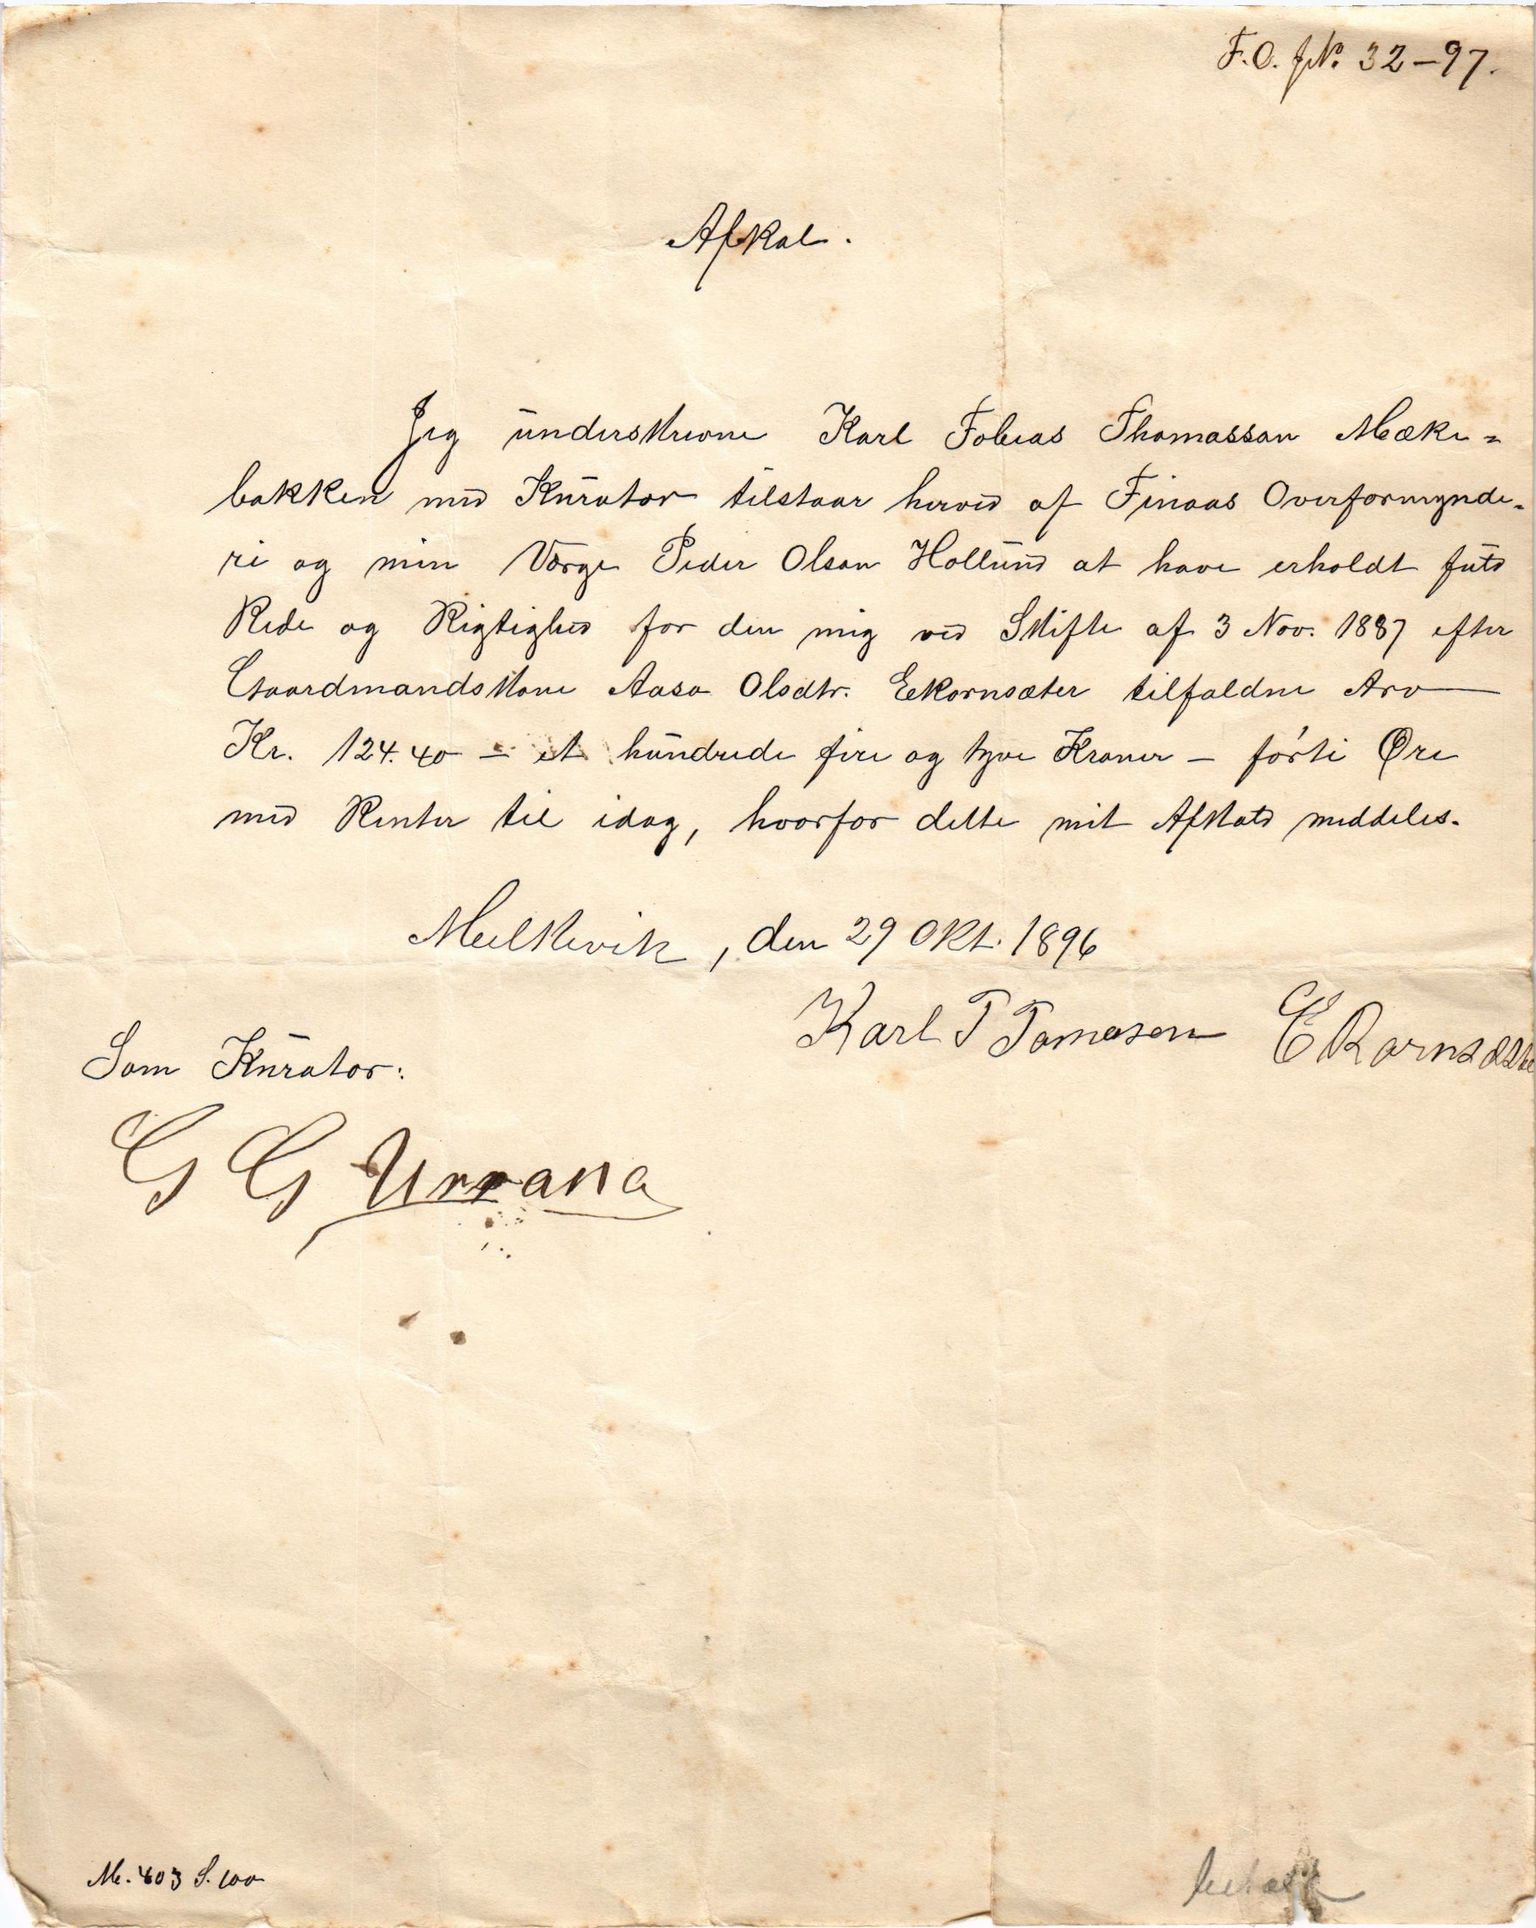 F.O. JNo. 32-97.
Afkal.
Jeg underskrevne Karl Tobias Thomassen Mæke=
bakken med Kurator tilstaar herved af Finaas Overformynde-
ri og min Værge Peder Olsen Hollund at have erholdt fuld
Rede og Rigtighed for den mig ved Skifte af 3 Nov. 1887 efter
Gaardmandskone Aasa Olsdtr. Eekornsæter tilfaldne Arv
Kr. 124.40 - et hundrede fire og tyve Kroner - førti Øre
med Renter til idag, hvorfor dette mit Afkald meddeles.
Mælkevik, den 29 Okt. 1896
Karl T Tomasen Ekornsæter
Som Kurator:
G G Urrang
M. 403 S. 100